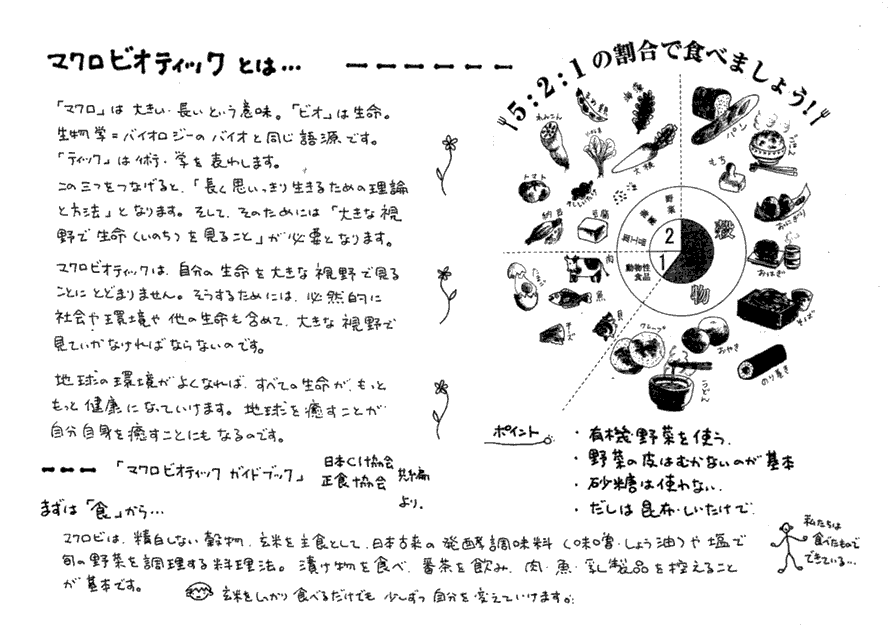 マクロビオティックとは…
「マクロ」は大きい・長いという意味。「ビオ」は生命。
生物学=バイオロジーのバイオと同じ語源です。
「ティック」は術・学を表わします。
この三つをつなげると、「長く思いっきり生きるための理論
と方法」となります。そして、そのためには「大きな視
野で生命(いのち)を見ること」が必要となります。
マクロビオティックは、自分の生命を大きな視野で見る
ことにとどまりません。そうするためには、必然的に
社会や環境や他の生命も含めて、大きな視野で
見ていかなければならないのです。
地球の環境がよくなれば、すべての生命が、もっと
もっと健康になっていけます。地球を癒すことが
自分自身を癒すことにもなるのです。
「マクロビオティック ガイドブック」
日本CI協会
正食協会
共編
より。
5:2:1の割合で食べましょう!
まめ類
海藻
れんこん
大根
トマト
しいたけ
納豆
豆腐
たまご
肉
魚
チーズ
貝
パン
ごはん
もち
おにぎり
おはぎ
そば
のり巻き
おやき
クレープ
うどん
野菜
海藻
豆工品
動物性
食品
穀物
2
1
ポイント
・有機野菜を使う.
・野菜の皮はむかないのが基本
・砂糖は使わない.
・だしは昆布・しいたけで.
まずは「食」から…
マクロビは、精白しない穀物、玄米を主食として、日本古来の発酵調味料(味噌・しょう油)や塩で
旬の野菜を調理する料理法。漬け物を食べ、番茶を飲み、肉・魚・乳製品を控えること
が基本です。
玄米をしっかり食べるだけでも少しずつ自分を変えていけます
私たちは
食べたもので
できている…